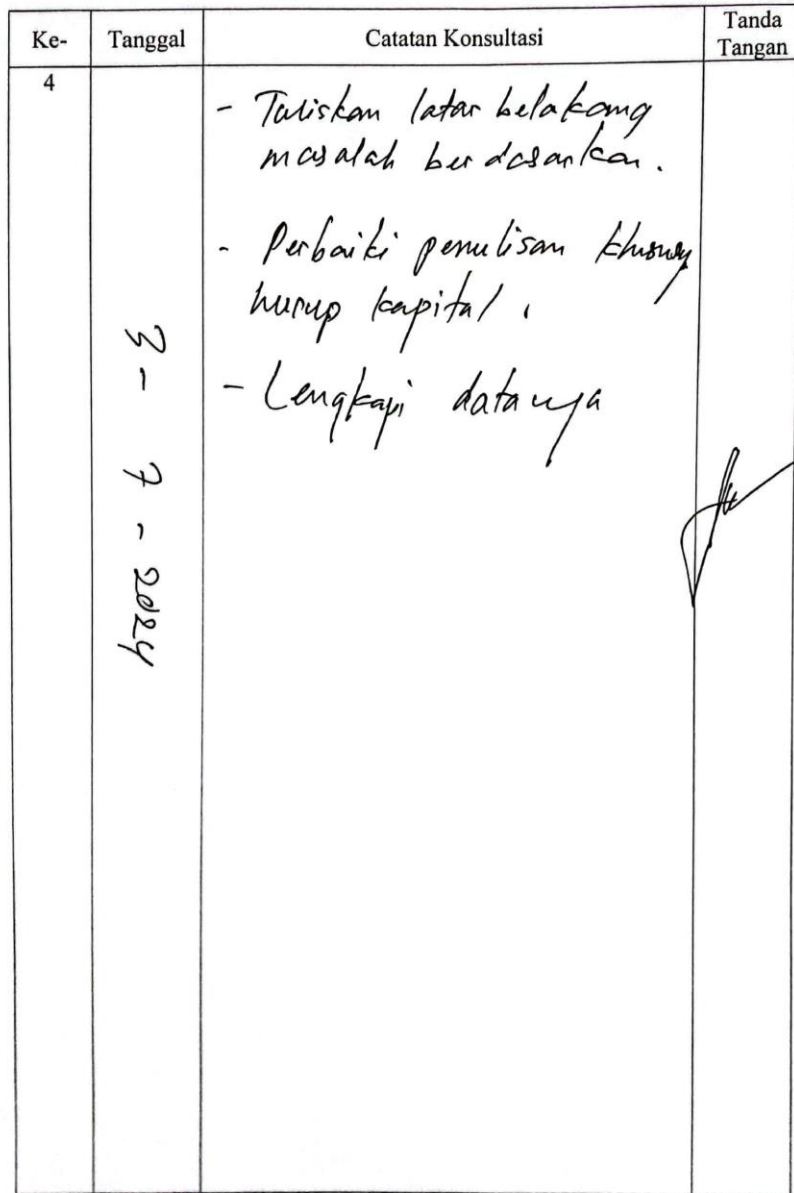 Ke-
Tanggal
Catatan Konsultasi
Tanda
Tangan
4
3 - 7 - 2024
- Tuliskan latar belakang
masalah berdasarkan.
- Perbaiki penulisan khusus
hurup kapital.
- Lengkapi datanya